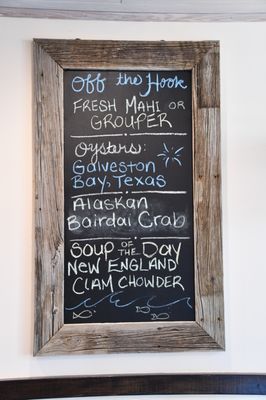 Off the Hook
FRESH MAHI OR
GROUPER
Oysters:
GALVESTON
BAY, TEXAS
Alaskan
Bairdai Crab
SOUP OF THE DAY
NEW ENGLAND
CLAM CHOWDER